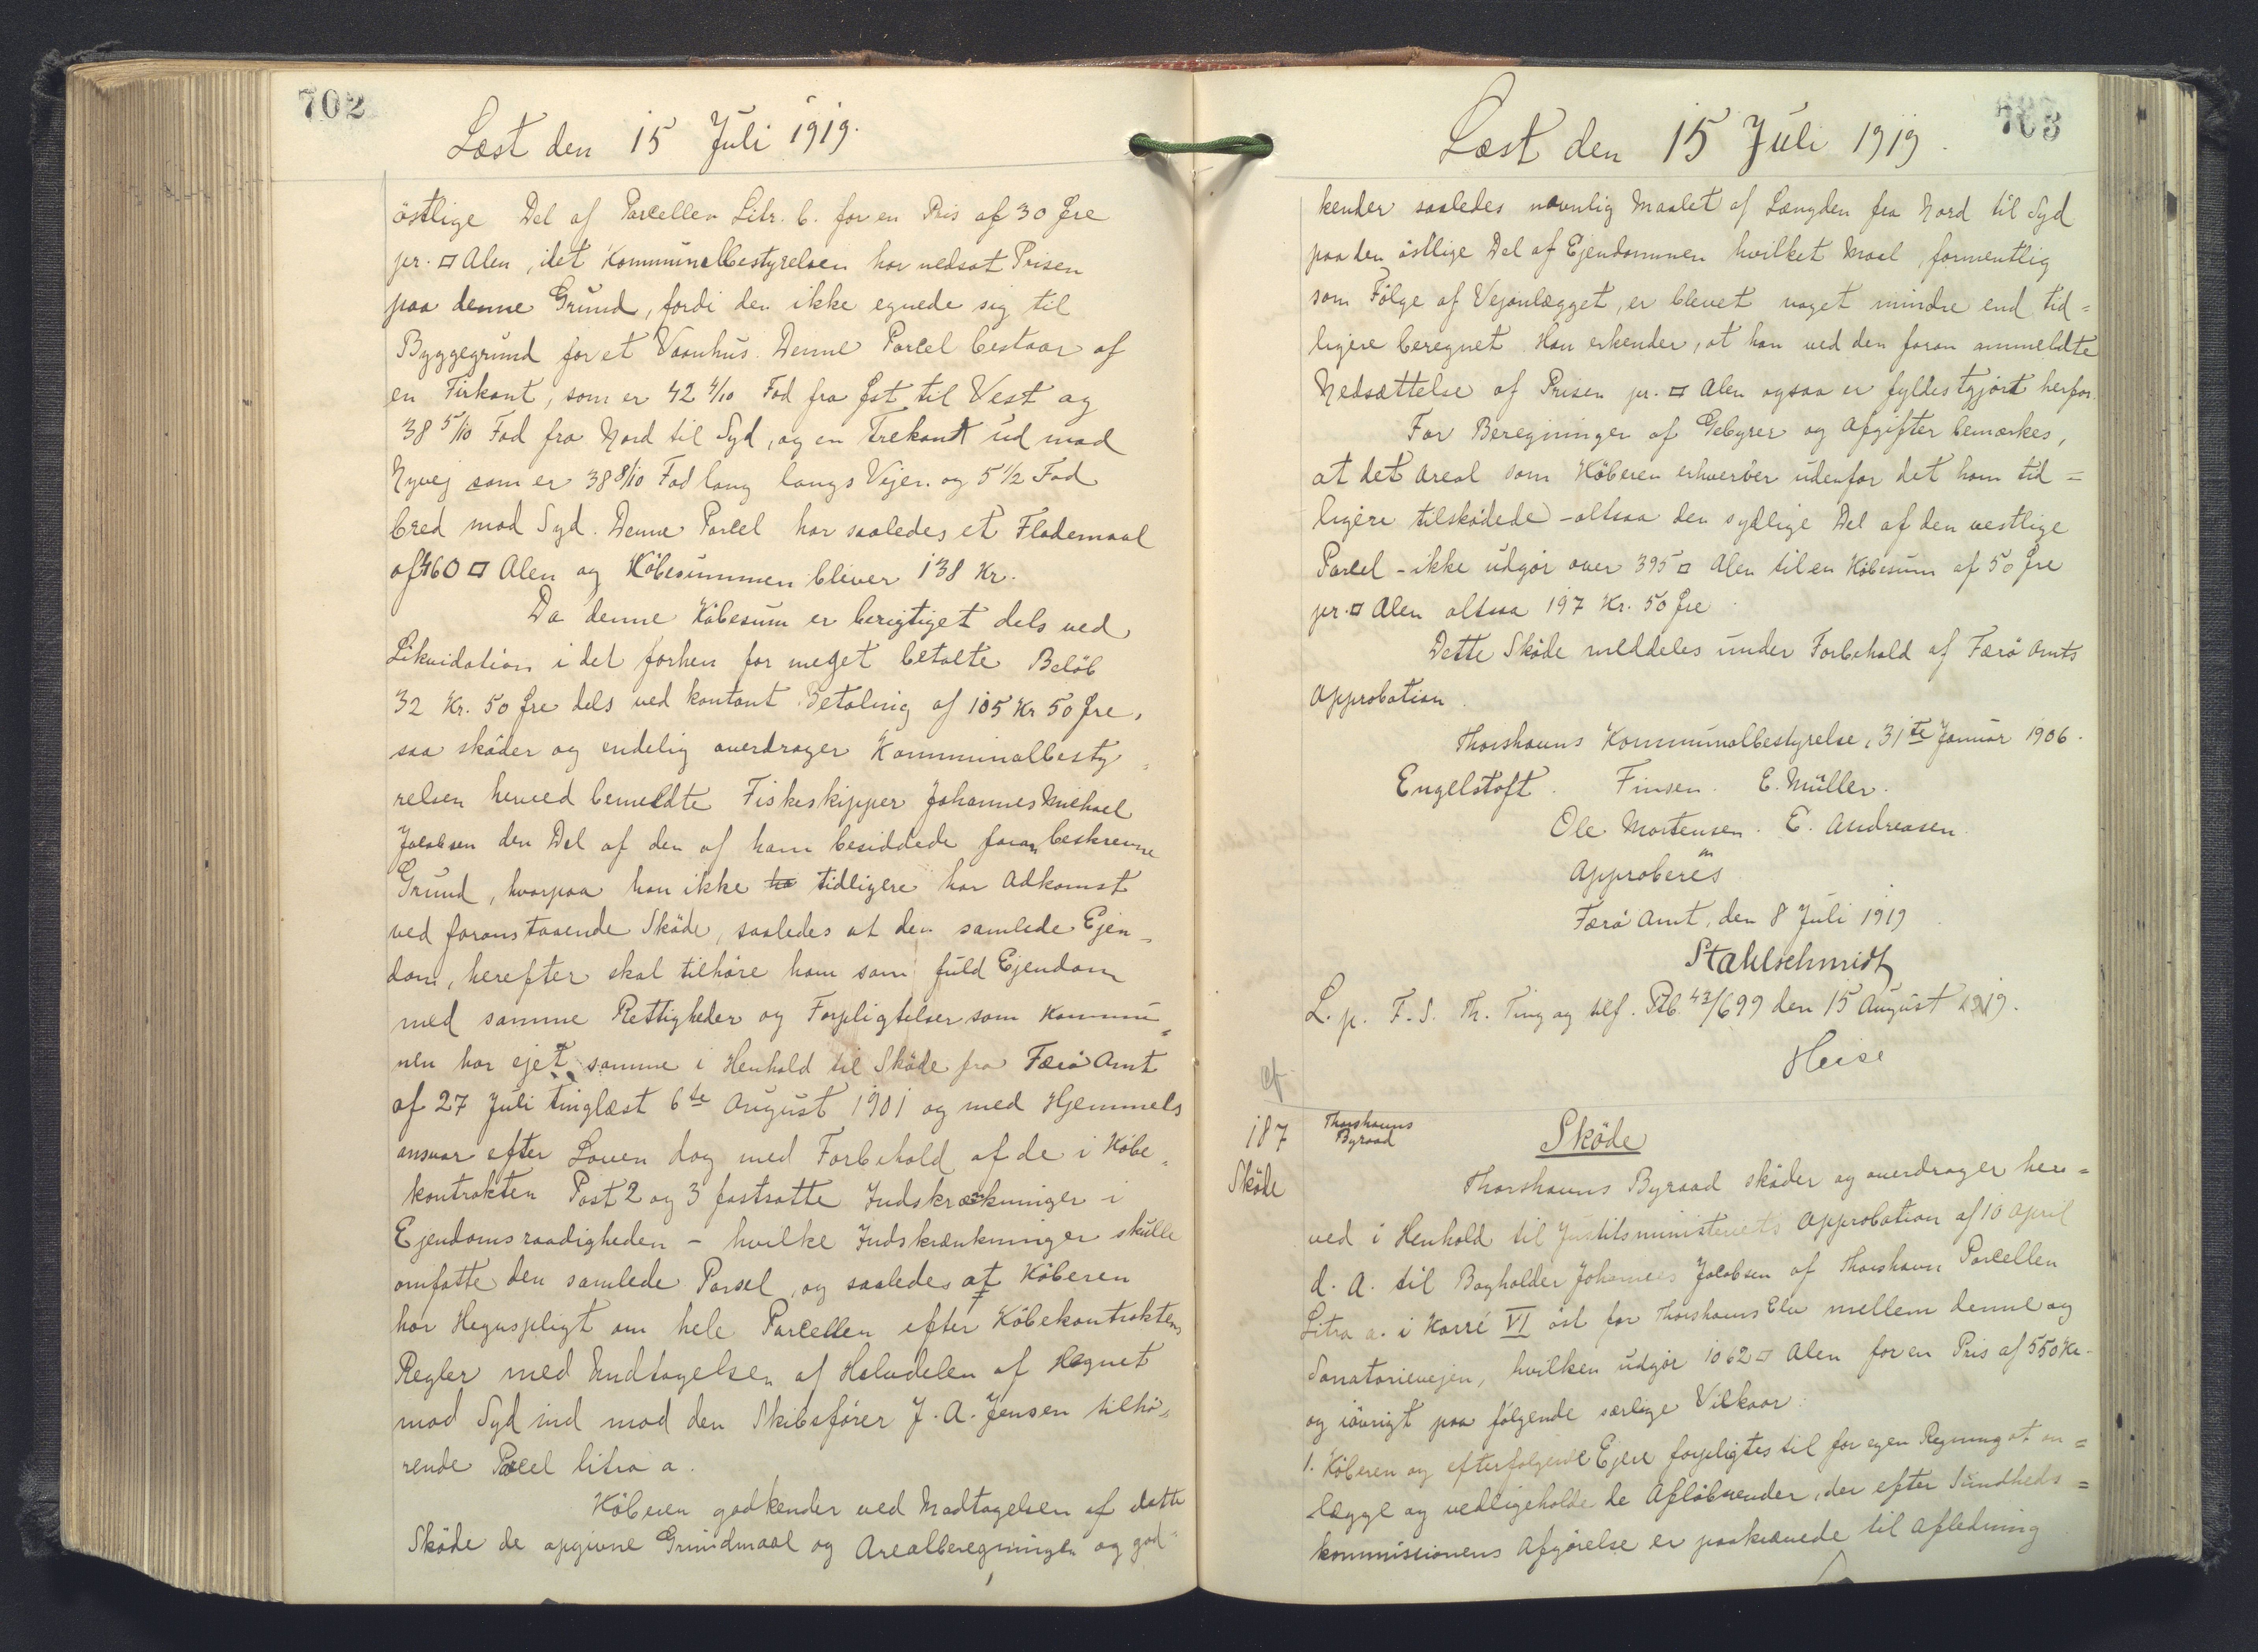 702
Læst den 15 Juli 1919.
östlige Del af Parcellen Litr. b. for en Pris af 30 Øre
pr. □ Alen, idet Kommunalbestyrelsen har nedsat Prisen
paa denne Grund, fordi den ikke egnede sig til
Byggegrund for et Vaanhus. Denne Parcel bestaar af
en Firkant, som er 42 4/10 Fod fra Øst til Vest og
38 5/10 Fod fra Nord til Syd, og en Trekant ud mod
Nyvej som er 38 8/10 Fod lang langs Vejen og 5 1/2 Fod
bred mod Syd. Denne Parcel har saaledes et Flademaal
af 460 □ Alen og Köbesummen bliver 138 Kr.
Da denne Köbesum er berigtiget dels ved
Likvidation i det forhen for meget betalte Belöb
32 Kr. 50 Øre dels ved kontant Betaling af 105 Kr 50 Øre,
saa sköder og endelig overdrager Kommunalbesty=
relsen herved bemeldte Fiskeskipper Johannes Michael
Jacobsen den Del af den af ham besiddede foran beskrevne
Grund, hvorpaa han ikke ha tidligere har Adkomst
ved foranstaaende Sköde, saaledes at den samlede Ejen=
dom, herefter skal tilhöre ham som fuld Ejendom
med samme Rettigheder og Forpligtelser som Kommu=
nen har ejet samme i Henhold til Sköde fra Færö Amt
af 27 Juli tinglæst 6te August 1901 og med Hjemmels
ansvar efter Loven dog med Forbehold af de i Köbe=
kontrakten Post 2 og 3 fastsatte Indskrænkninger i
Ejendomsraadigheden - hvilke Indskrænkninger skulle
omfatte den samlede Parsel, og saaledes at Köberen
har Hegnspligt om hele Parcellen efter Köbekontraktens
Regler med Undtagelsen af Halvdelen af Hegnet
mod Syd ind mod den Skibsförer J. A. Jensen tilhö=
rende Parcel litra a.
Köberen godkender ved Modtagelsen af dette
Sköde de opgivne Grundmaal og Arealberegninger og god=
703
Læst den 15 Juli 1919.
kender saaledes navnlig Maalet af Længden fra Nord til Syd
paa den östlige Del af Ejendommen hvilket Maal, formentlig
som Fölge af Vejanlægget, er blevet noget mindre end tid=
ligere beregnet. Han erkender, at han ved den foran anmeldte
Nedsættelse af Prisen pr. □ Alen ogsaa er fyldestgjort herfor.
For Beregninger af Gebyrer og Afgifter bemærkes,
at det Areal som Köberen erhverver udenfor det ham tid=
ligere tilsködede - altsaa den sydlige Del af den vestlige
Parcel - ikke udgör over 395 □ Alen til en Köbesum af 50 Øre
pr. □ Alen altsaa 197 Kr. 50 Øre.
Dette Sköde meddeles under Forbehold af Færö Amts
Approbation.
Thorshavns Kommunalbestyrelse, 31te Januar 1906.
Engelstoft. Finsen. E. Müller.
Ole Mortensen. E. Andreasen.
Approberes
Færö Amt, den 8 Juli 1919
Stahlschmidt
L. p. F. S. Th. Ting og tilf. Ptb. 43/699 den 15 August 1919.
Heise
187
Sköde
Thorshavns
Byraad
Sköde
Thorshavns Byraad sköder og overdrager her=
ved i Henhold til Justitsministeriets Approbation af 10 April
d. A. til Bogholder Johannes Jacobsen af Thorshavn Parcellen
Litra a. i Karré VI öst for Thorshavns Elv mellem denne og
Sanatorievejen, hvilken udgör 1062 □ Alen for en Pris af 550 Kr.
og iövrigt paa fölgende særlige Vilkaar:
1. Köberen og efterfölgende Ejere forpligtes til for egen Regning at an=
lægge og vedligeholde de Aflöbsrender, der efter Sundheds=
kommissionens Afgörelse er paakrævede til Afledning